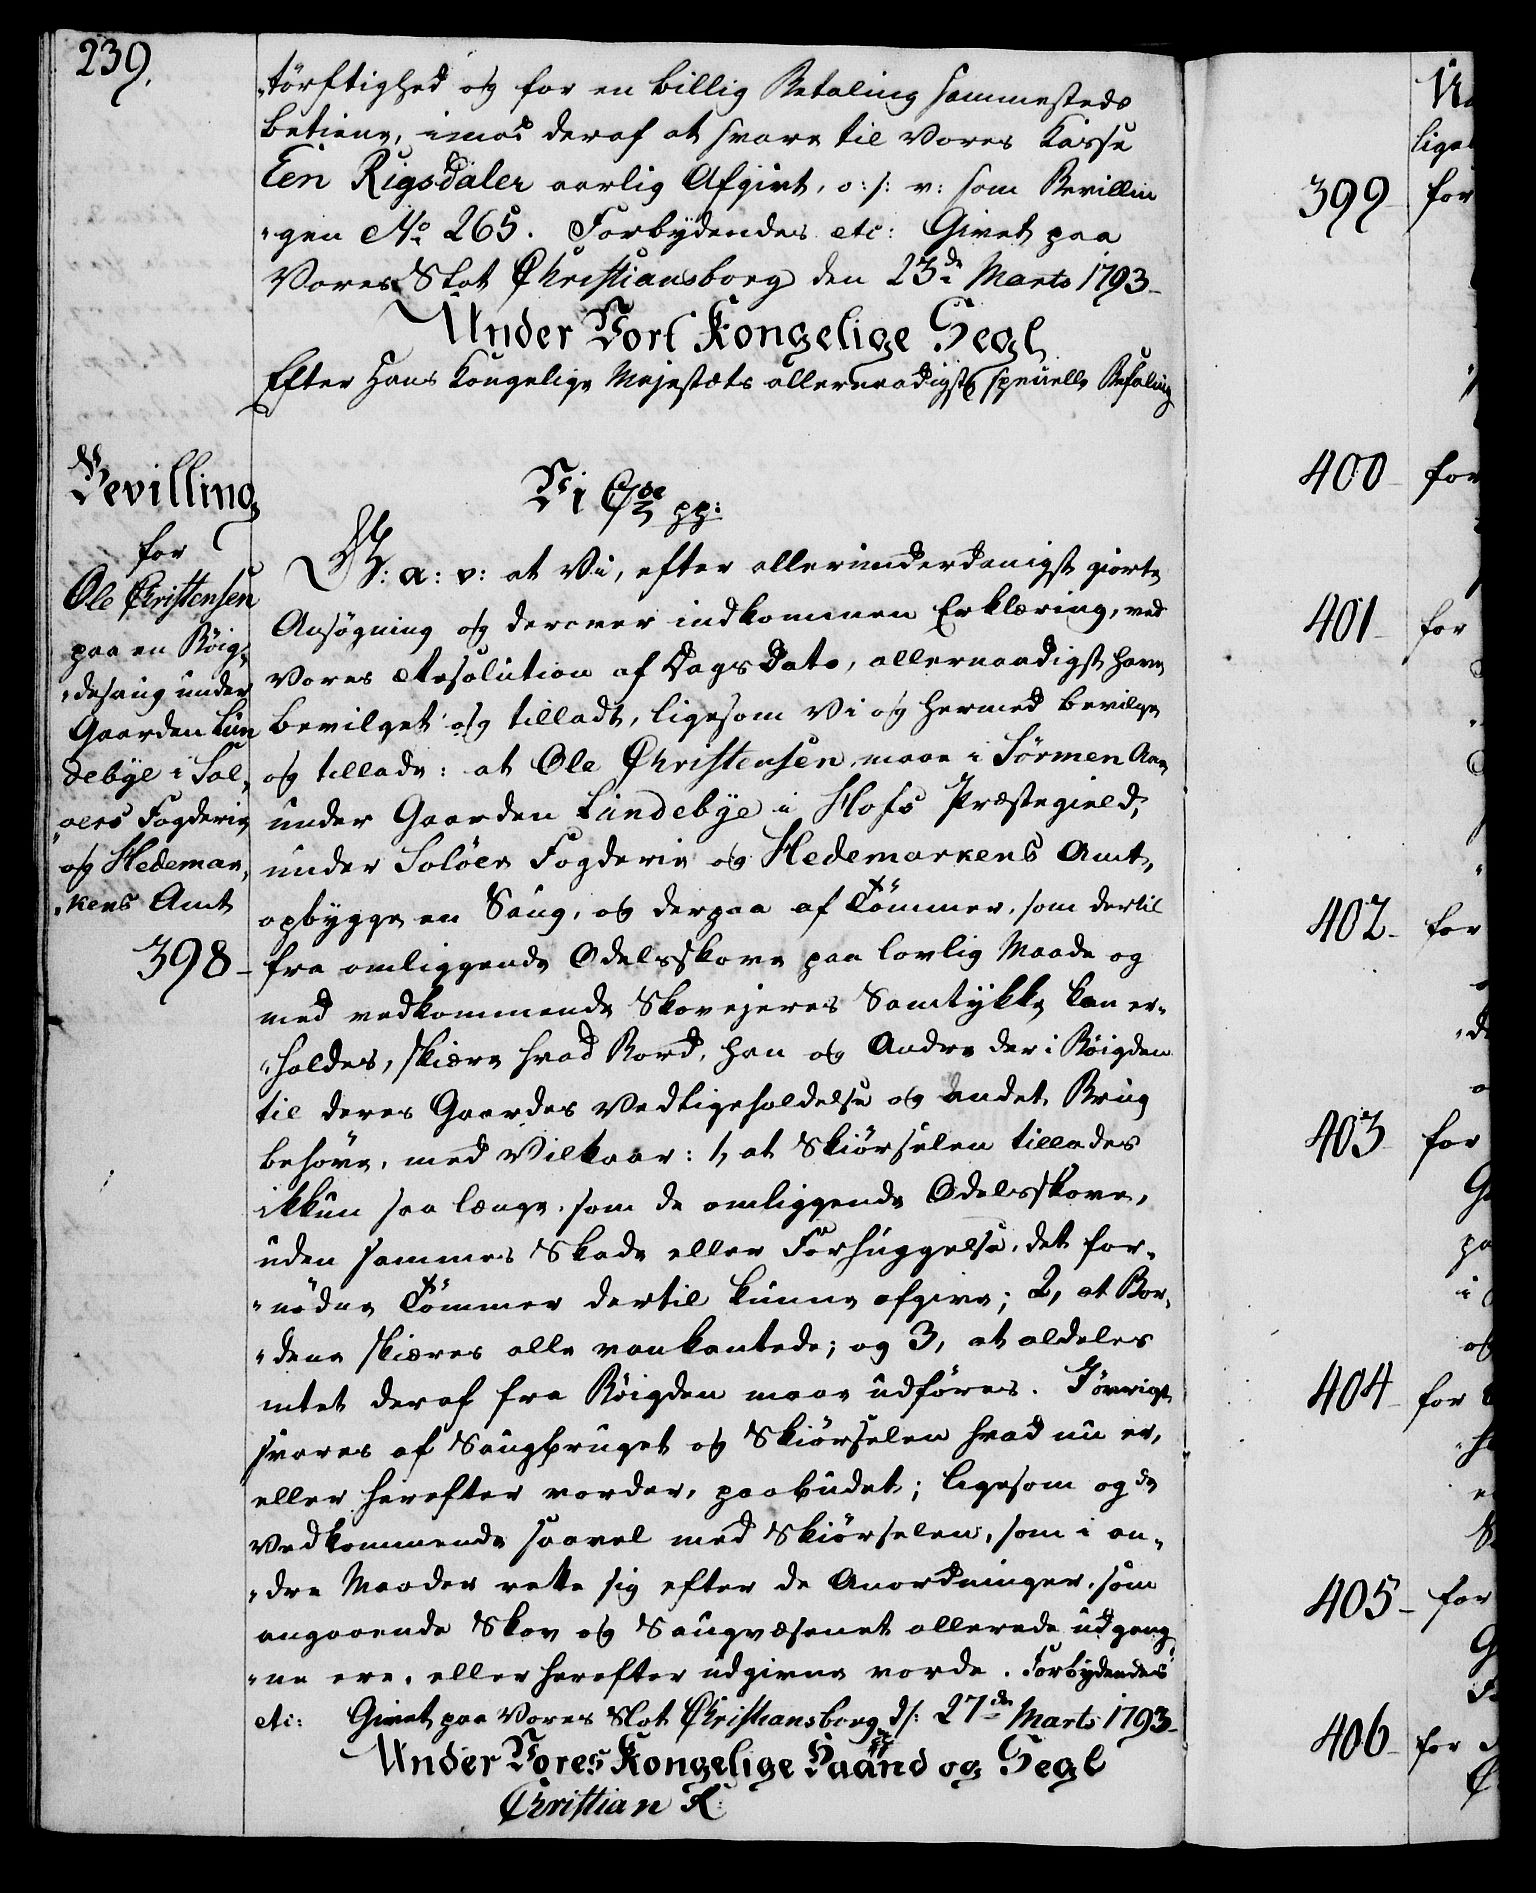 239.
"törftighed og for en billig Betaling sammesteds
betiene, imod deraf at svare til Vores Kasse
Een Rigsdaler aarlig Afgivt, o: s: v: som Bevillin
"gen No 265. Forbydendes etc: Givet paa
Vores Slot Christiansborg den 23de Marts 1793 -
Under Vort Kongelige Segl
Efter Hans Kongelige Majestæts allernaadigste specielle Befaling
Bevilling
for
Ole Christensen
paa en Böig-
"desaug under
Gaarden Lün
debÿe i Sol-
"oers Fogderie
og Hedemar-
"kens Amt
398 -
Vi C 7de pp:
G: a: v: at Vi, efter allerunderdanigst giorte
Ansøgning og derover indkommen Erklæring, ved
Vores Resolution af Dags Dato, allernaadigst have
bevilget og tilladt, ligesom Vi og hermed bevilge
og tillade: at Ole Christensen maae i Sörmen Aae
under Gaarden Lindebÿe i Hofs Præstegield,
under Solöer Fogderie og Hedemarkens Amt,
opbygge en Saug, og derpaa af Tömmer, som dertil
fra omliggende Odelsskove paa lovlig Maade og
med vedkommende Skovejeres Samtÿkke kan er-
"holdes, skiære hvad Bord, han og Andre der i Böigden
til deres Gaardes Vedligeholdelse og andet Brug
behöve, med Vilkaar: 1, at Skiörselen tillades
ikkun saa længe, som de omliggende Odelsskove,
uden sammes Skade eller Forhuggelse, det for-
"nödne Tömmer dertil kunne afgive; 2, at Bor-
"dene skiæres alle vankantede; og 3, at aldeles
intet deraf fra Böigden maae udföres. Jövrigt
svares af Saugbruget og Skiörselen hvad nu er,
eller herefter vorder, paabudet; ligesom og de
Vedkommende saavel med Skiörselen, som i an-
"dre Maader rette sig efter de Anordninger, som
angaaende Skov og Saugvæsenet allerede udgang-
"ne ere, eller herefter udgivne vorde. Forbydendes
etc: Givet paa Vores Slot Christiansborg d: 27de Marts 1793 -
Under Vores Kongelige Haand og Segl
Christian R:
liges
399 - for
400 - for
401 - for
402 - for
403 - for
404 - for
405 - for
406 - for